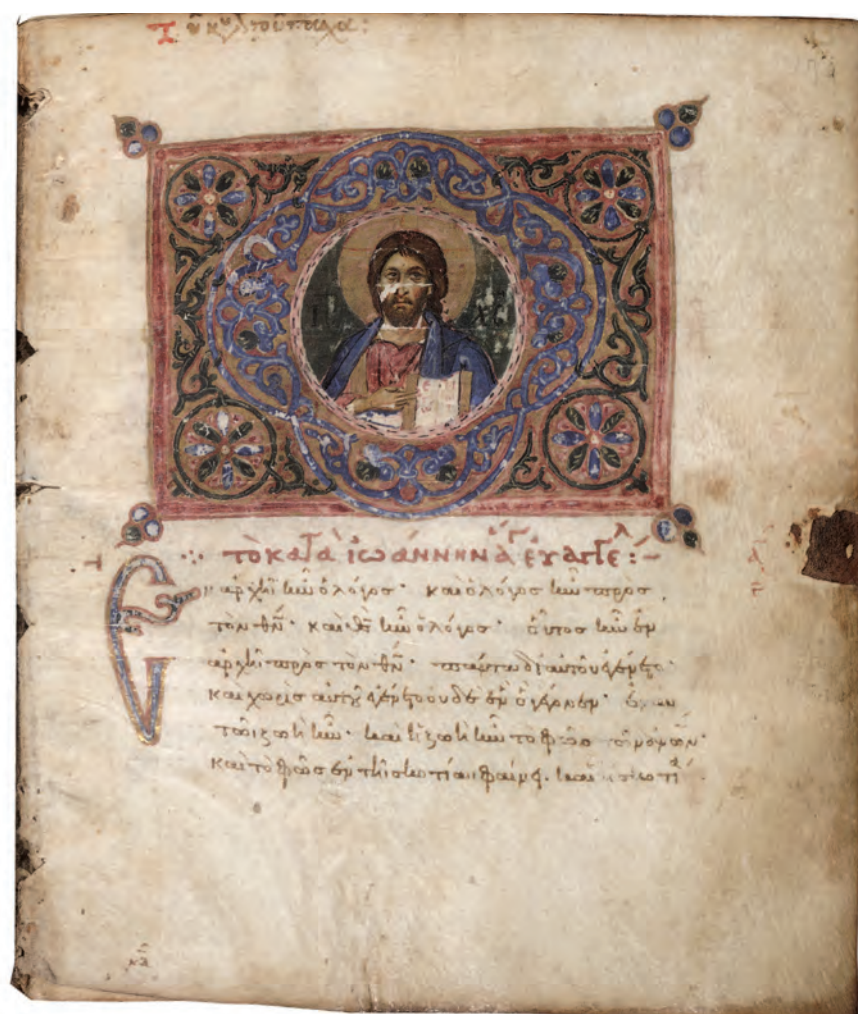 τῆ κυ τοῦ πάσχα:
ΙC ΧC
τὸ κατὰ ἰωάννην ἅγ εὐαγγελ:
Ἐν ἀρχῆι ἦν ὁ λόγος· καὶ ὁ λόγος ἦν πρὸς
τὸν θν· καὶ θς ἦν ὁ λόγος· οὗτος ἦν ἐν
ἀρχῆι πρὸς τὸν θν· πάντα δι αὐτοῦ ἐγένετο·
καὶ χωρὶς αὐτοῦ ἐγένετο οὐδὲ ἓν ὃ γέγονεν· ἐν αυ
τῶι ζωὴ ἦν· καὶ ἡ ζωὴ ἦν τὸ φῶς τῶν ἀνων·
καὶ τὸ φῶς ἐν τῆι σκοτίαι φαίνει· καὶ ἡ σκοτία